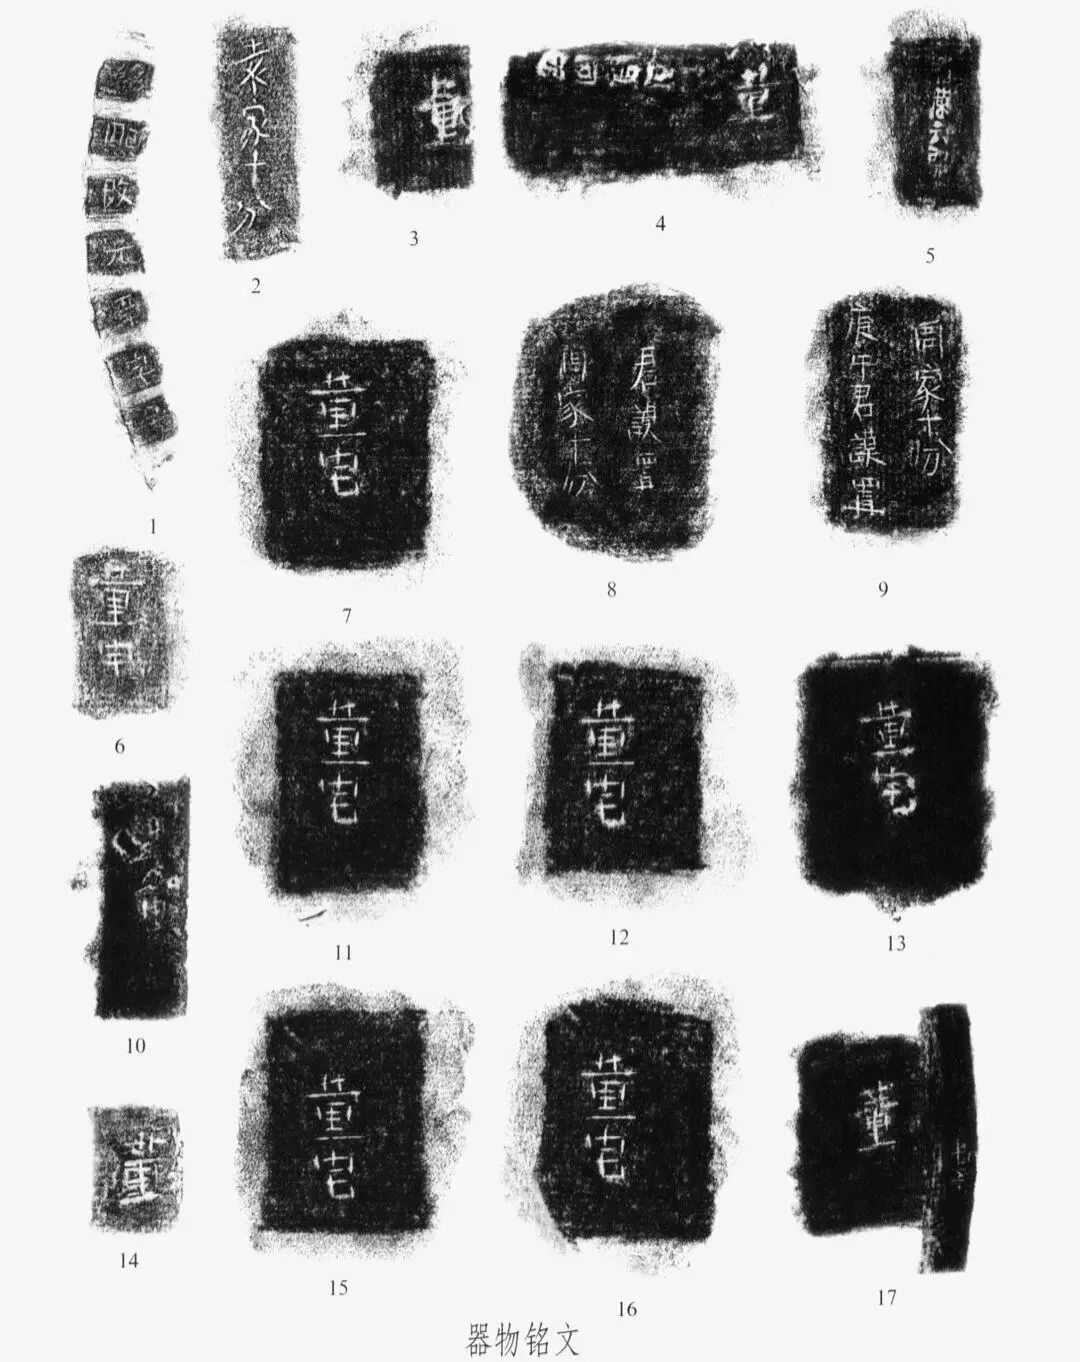 袁家十分
董
董
1
2
3
4
5
董宅
君謨置
周家十分
周家十分
庚午君謨置
董
6
7
8
9
董宅
董宅
董宅
10
11
12
13
董
董宅
董宅
董
14
15
16
17
器物铭文